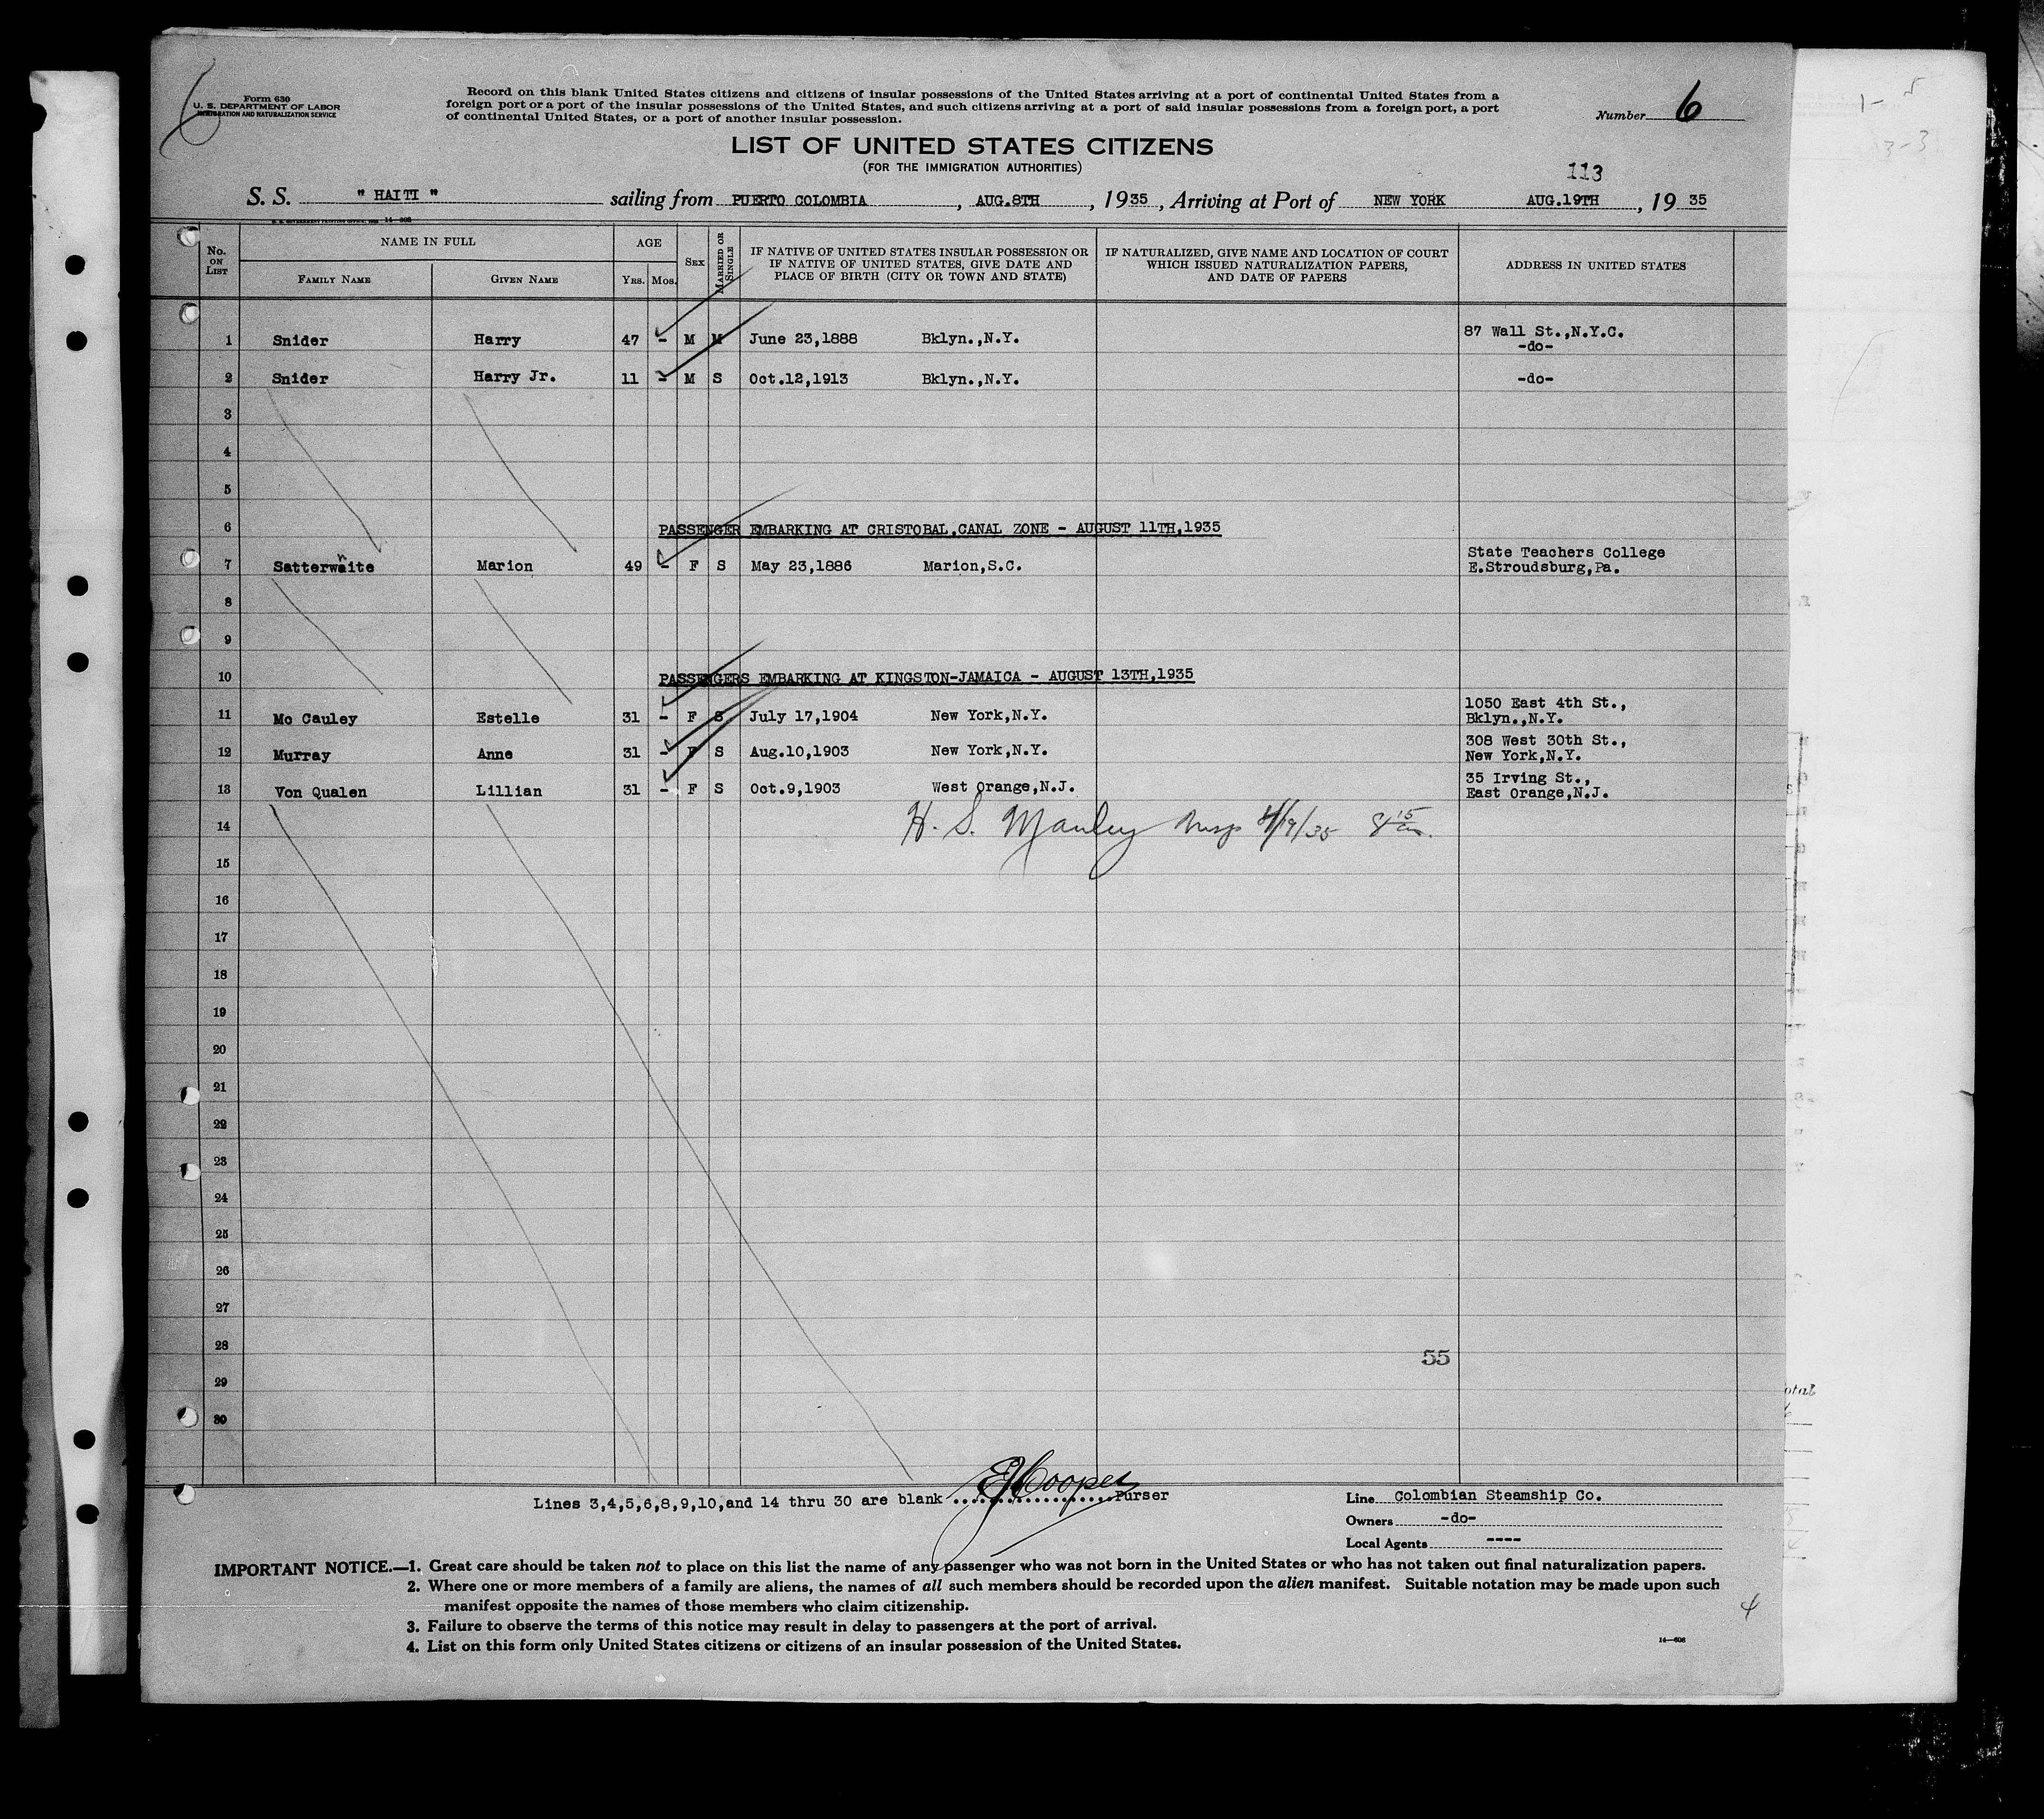 Form 630
U. S. DEPARTMENT OF LABOR
IMMIGRATION AND NATURALIZATION SERVICE
Record on this blank United States citizens and citizens of insular possessions of the United States arriving at a port of continental United States from a
foreign port or a port of the insular possessions of the United States, and such citizens arriving at a port of said insular possessions from a foreign port, a port
of continental United States, or a port of another insular possession.
Number 6
LIST OF UNITED STATES CITIZENS
(FOR THE IMMIGRATION AUTHORITIES)
113
S. S. " HAITI " sailing from PUERTO COLOMBIA, AUG.8TH, 1935, Arriving at Port of NEW YORK AUG.19TH, 19 35
No. ON LIST NAME IN FULL AGE SEX MARRIED OR SINGLE IF NATIVE OF UNITED STATES INSULAR POSSESSION OR IF NATIVE OF UNITED STATES, GIVE DATE AND PLACE OF BIRTH (CITY OR TOWN AND STATE) IF NATURALIZED, GIVE NAME AND LOCATION OF COURT WHICH ISSUED NATURALIZATION PAPERS, AND DATE OF PAPERS ADDRESS IN UNITED STATES
FAMILY NAME GIVEN NAME YRS. MOS.
1 Snider Harry 47 - M M June 23,1888 Bklyn.,N.Y. 87 Wall St.,N.Y.C.
-do-
2 Snider Harry Jr. 11 - M S Oct.12,1913 Bklyn.,N.Y. -do-
3
4
5
6 PASSENGER EMBARKING AT CRISTOBAL,CANAL ZONE - AUGUST 11TH,1935
7 Satterwaite h Marion 49 - F S May 23,1886 Marion,S.C. State Teachers College
E.Stroudsburg,Pa.
8
9
10 PASSENGERS EMBARKING AT KINGSTON-JAMAICA - AUGUST 13TH,1935
11 Mc Cauley Estelle 31 - F S July 17,1904 New York,N.Y. 1050 East 4th St.,
Bklyn.,N.Y.
12 Murray Anne 31 - F S Aug.10,1903 New York,N.Y. 308 West 30th St.,
New York,N.Y.
13 Von Qualen Lillian 31 - F S Oct.9,1903 West Orange,N.J. 35 Irving St.,
East Orange,N.J.
14 H. S. Manley Insp 8/19/35 8 15 am.
15
16
17
18
19
20
21
22
23
24
25
26
27
28
55
29
30
Lines 3,4,5,6,8,9,10,and 14 thru 30 are blank EJ Cooper Purser
Line Colombian Steamship Co.
Owners -do-
Local Agents ----
IMPORTANT NOTICE.—1. Great care should be taken not to place on this list the name of any passenger who was not born in the United States or who has not taken out final naturalization papers.
2. Where one or more members of a family are aliens, the names of all such members should be recorded upon the alien manifest. Suitable notation may be made upon such
manifest opposite the names of those members who claim citizenship.
3. Failure to observe the terms of this notice may result in delay to passengers at the port of arrival.
4. List on this form only United States citizens or citizens of an insular possession of the United States.
14—608
4